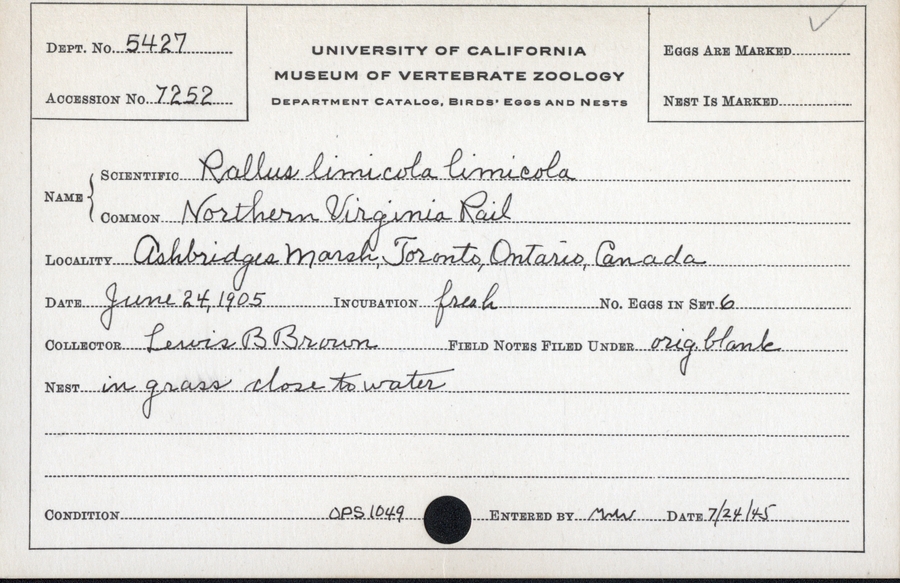 DEPT. No. 5427
ACCESSION No. 7252
UNIVERSITY OF CALIFORNIA
MUSEUM OF VERTEBRATE ZOOLOGY
DEPARTMENT CATALOG, BIRDS' EGGS AND NESTS
EGGS ARE MARKED
NEST IS MARKED
NAME
SCIENTIFIC Rallus limicola limicola
COMMON Northern Virginia Rail
LOCALITY Ashbridges Marsh, Toronto, Ontario, Canada
DATE June 24, 1905 INCUBATION fresh No. EGGS IN SET 6
COLLECTOR Lewis B Brown FIELD NOTES FILED UNDER orig. blank
NEST in grass close to water
CONDITION OPS 1049 ENTERED BY DATE 7/24/45